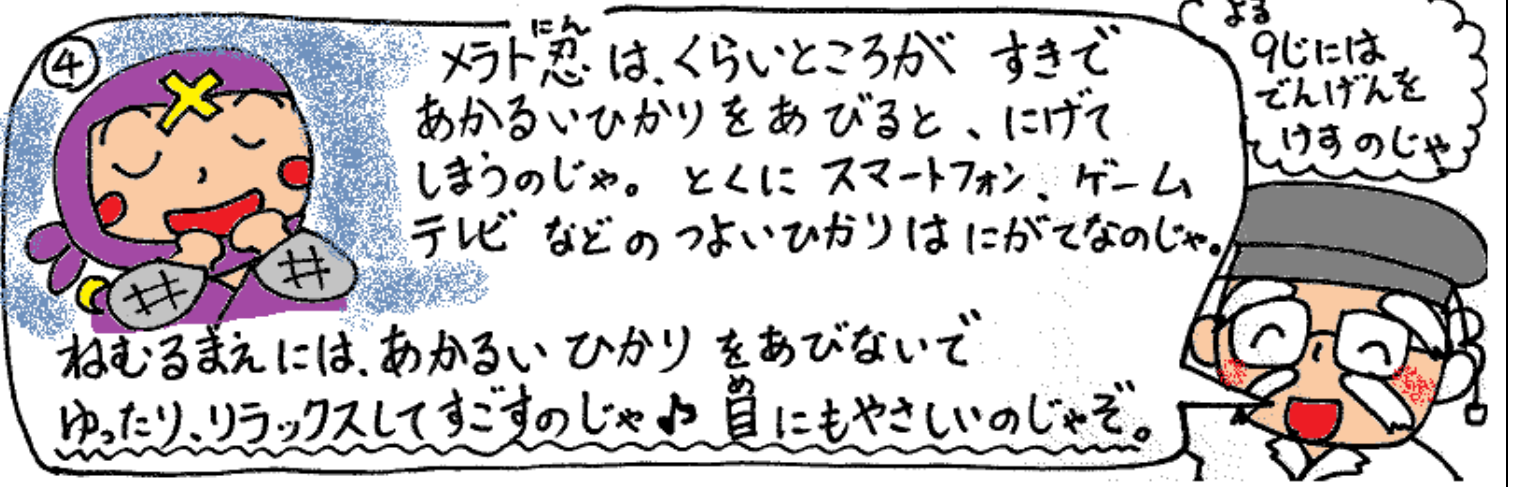 ④
メラト忍は、くらいところが すきで
にん
あかるいひかりをあびると、にげて
しまうのじゃ。 とくに スマートフォン、ゲーム
テレビ などの つよいひかりは にがてなのじゃ。
ねむるまえには、あかるい ひかり をあびないで
ゆったり、リラックスしてすごすのじゃ♪ 目にもやさしいのじゃぞ。
め
よる
9じには
でんげんを
けすのじゃ